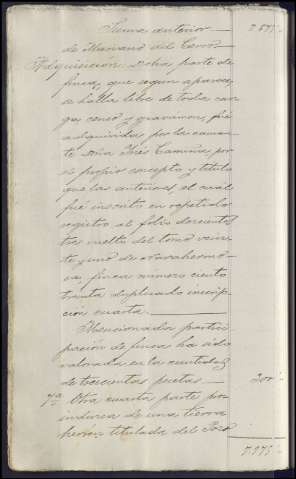 Suma anterior — 7.677 "
de Mariano del Cerro —
Adquisicion: Dcha parte de
finca, que según aparece,
se halla libre de toda car
ga censo y gravamen, fué
adquirida por la causan
te Doña Inés Camuña, por
el propio concepto y titulo
que las anteriores, el cual
fué inscrito en repetido
registro al folio doscientos
tres vuelto del tomo vein
te y uno de Navahermo
sa, finca número ciento
treinta duplicado inscrip
ción cuarta.
Mencionada partici
pación de finca ha sido
valorada en la cantidad
de trescientas pesetas — 300 "
7ª Otra cuarta parte pro
indivisa de una tierra
herren titulada del Pozo
7.975 "